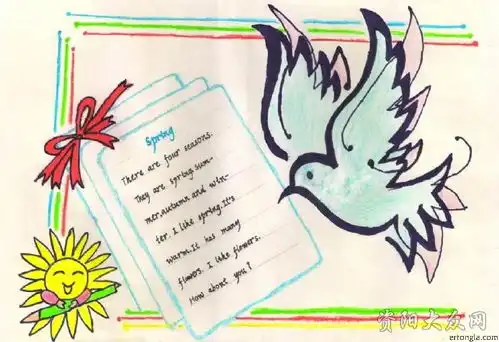 Spring
There are four seasons.
They are spring.sum-
mer.autumn and win-
ter. I like spring.It's
warm.It has many
flowers. I like flowers.
How about you?
资阳大众网
ertongla.com